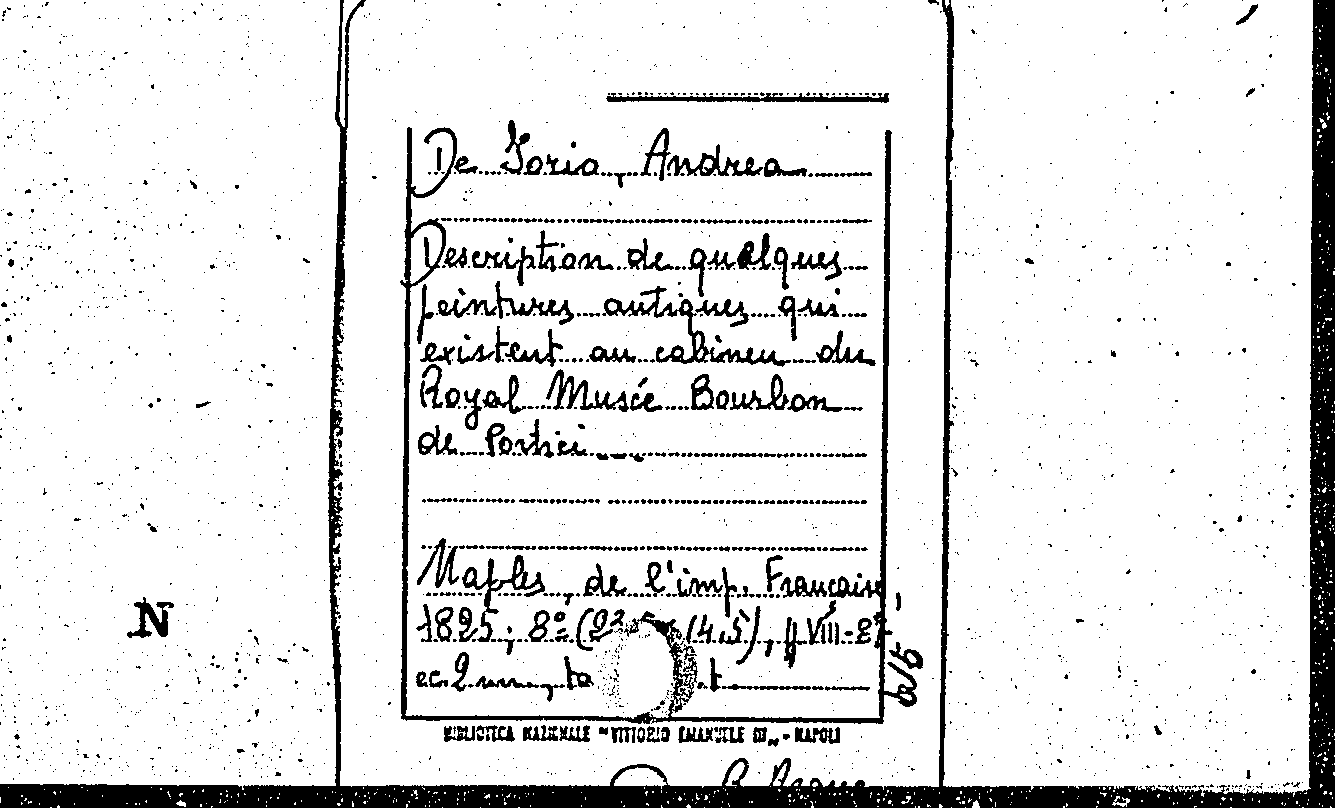 De Jorio, Andrea
Description de quelques
peintures antiques qui
existent au cabineu du
Royal Musée Bourbon
de Portici
Naples, de l'imp. Française,
1825; 8º (23,5 x 14,5), pp VIII-87
N
ec. 2 nn., t.
BIBLIOTECA NAZIONALE "VITTORIO EMANUELE III" - NAPOLI